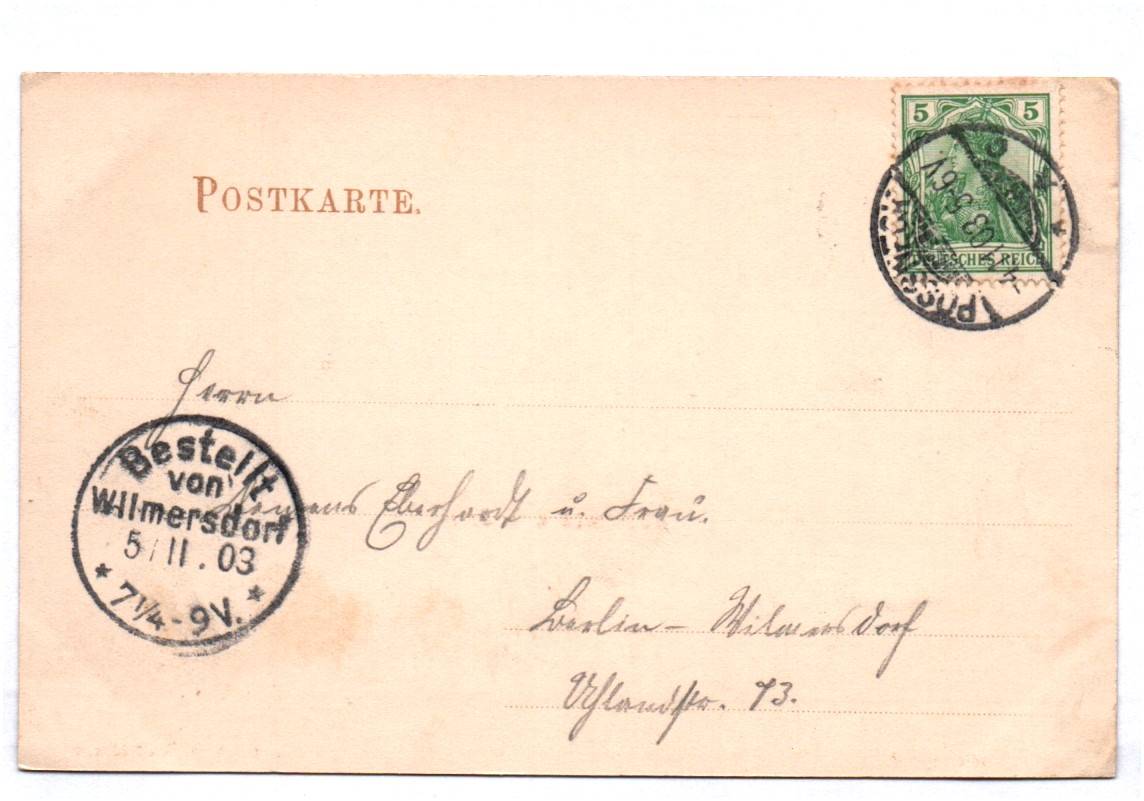 5 5
POSTKARTE.
DEUTSCHES REICH
Herrn
Bestellt
von
Wilmersdorf
5/11.03
7¼-9V.
Clemens Eberhardt u. Frau.
Berlin - Wilmersdorf
Uhlandstr. 73.